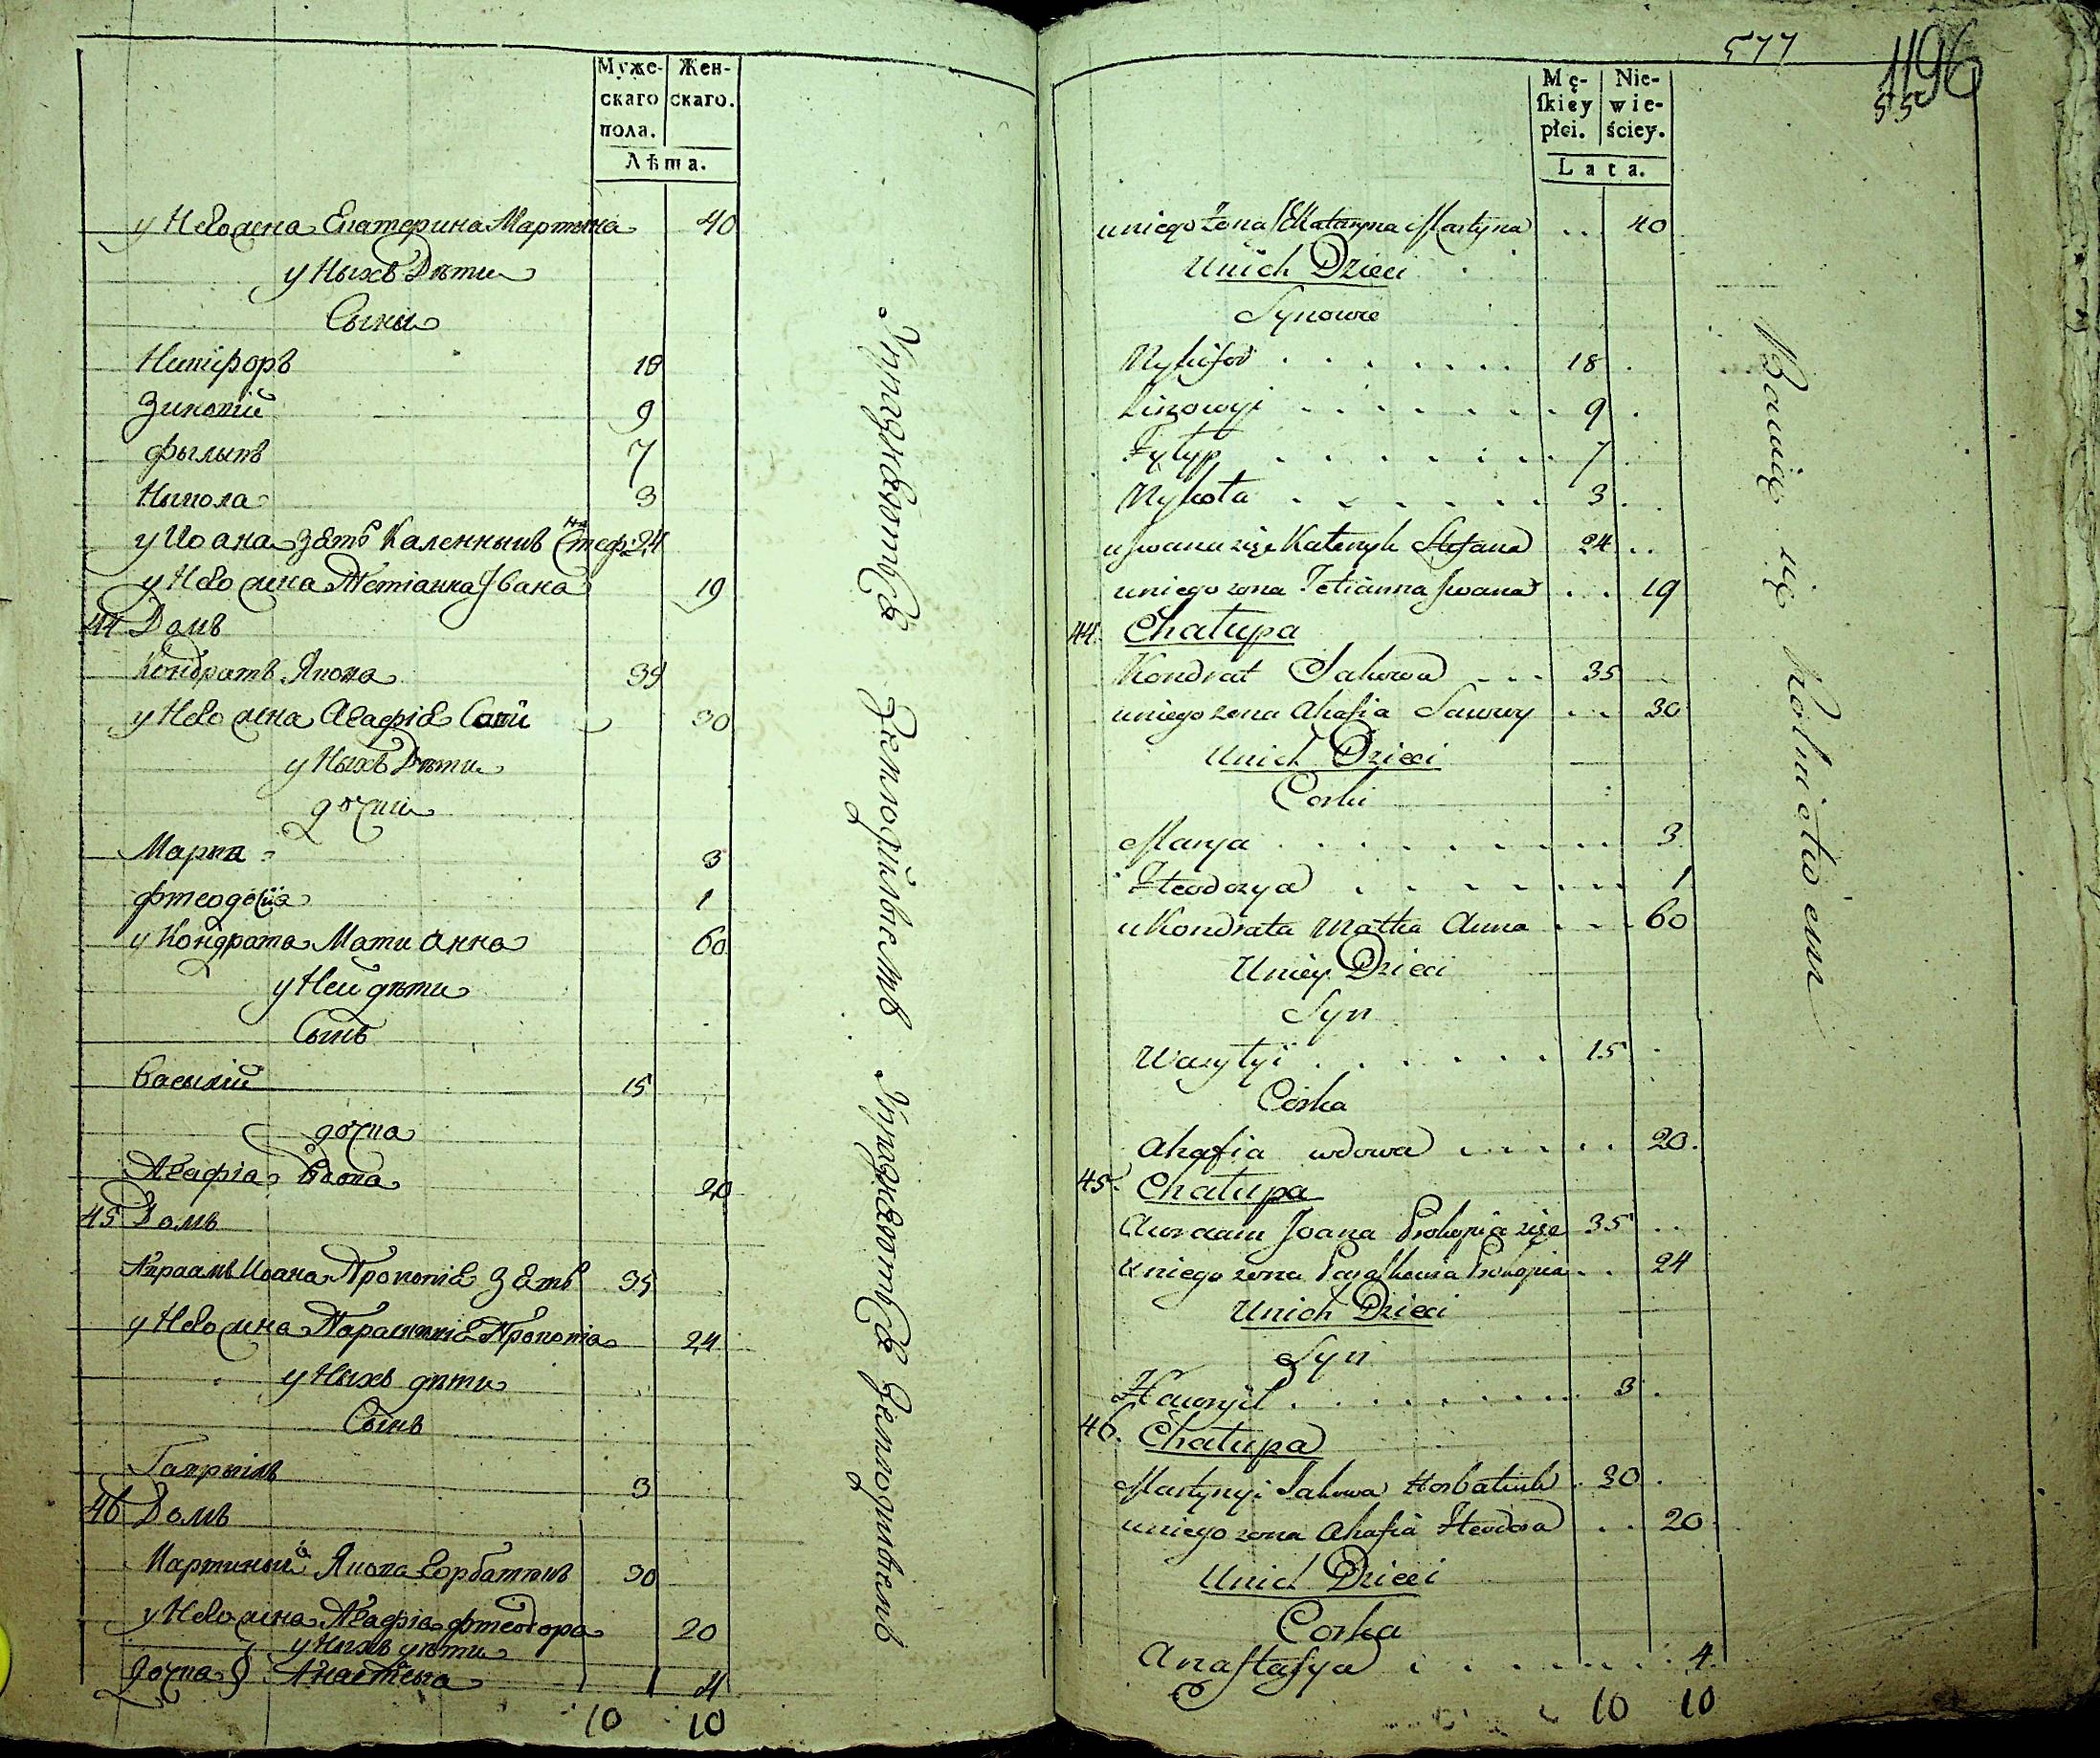 Муже-
скаго
пола.
Жен-
скаго.
Лѣта.
у Него жена Екатерина Мартына 40
у Ныхъ Дѣти
Сыни
Никіфоръ 18
Зиновій 9
Фылыпъ 7
Никола 3
у Иоана зять Каленикъ Стефа: 24
у Него жена Тетіанна Івана 19
44 Домъ
Кондратъ Якова 35
у Него жена Агафіа Савы 30
у Ныхъ Дѣти
дочки
Марья 3
Фтеодосіа 1
у Кондрата Мати Анна 60
у Ней дѣти
Сынъ
Василій 15
дочка
Агафіа вдова 20
45 Домъ
Авраамъ Иоана Прокопія зять 35
у Него жена Параскевіа Прокопіа 24
у Ныхъ дѣти
Сынъ
Гаврыилъ 3
46 Домъ
Мартиный Якова Горбатюкъ 30
у Него жена Агафіа Фтеодора 20
у Ныхъ дѣти
Дочка Анастасыа 4
10 10
Упражняются Землодѣлыемъ
Упражняются Землодѣлыемъ
577
1196
55
Mę-
ſkiey
płci.
Nie-
wie-
ściey.
Lata.
uniego Żona Katarzyna Martyna .. 40
Unich Dzieci
Synowie
Nykifor 18
Zinowyi 9
Fyłyp 7
Nykoła 3
u Iwana zięc Kalenyk Stefana 24 ..
uniego zona Tetianna Iwana .. 19
44. Chałupa
Kondrat Jakowa 35
uniego zona Ahafia Sawwy .. 30
Unich Dzieci
Corki
Marya 3
Fteodozya 1
u Kondrata Matka Anna 60
Uniey Dzieci
Syn
Wasyłyi 15
Córka
Ahafia wdowa 20.
45. Chałupa
Awraam Joana Prokopia zięc 35 ..
Uniego zona Paraſkewia Prokopia .. 24
Unich Dzieci
Syn
Hawryił 3
46. Chałupa
Martynyi Jakowa Horbatiuk 30
uniego zona Ahafia Fteodora .. 20
Unich Dzieci
Corka
Anaſtaſya 4.
10 10
Bawią się Rolnictwem